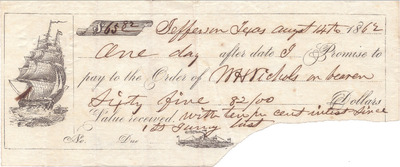 $65 82 Jefferson Texas augt 14th 1862
One day after date I Promise to
pay to the Order of W H Nichols or bearer
Sixty five 82/00 Dollars
Value received with ten per cent intrest since
1st
No. Due